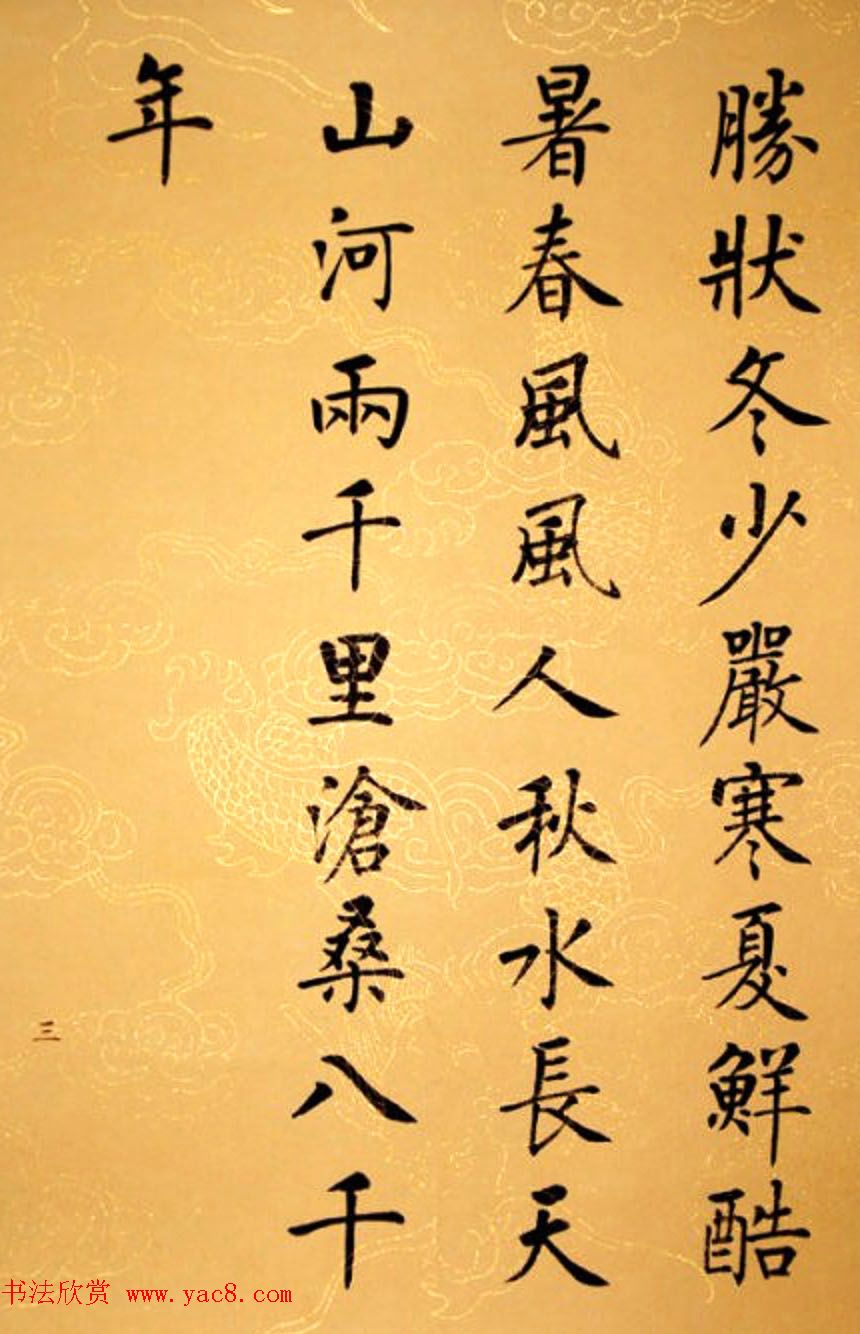 勝狀冬少嚴寒夏鮮酷
暑春風風人秋水長天
山河兩千里滄桑八千
年
三
书法欣赏 www.yac8.com